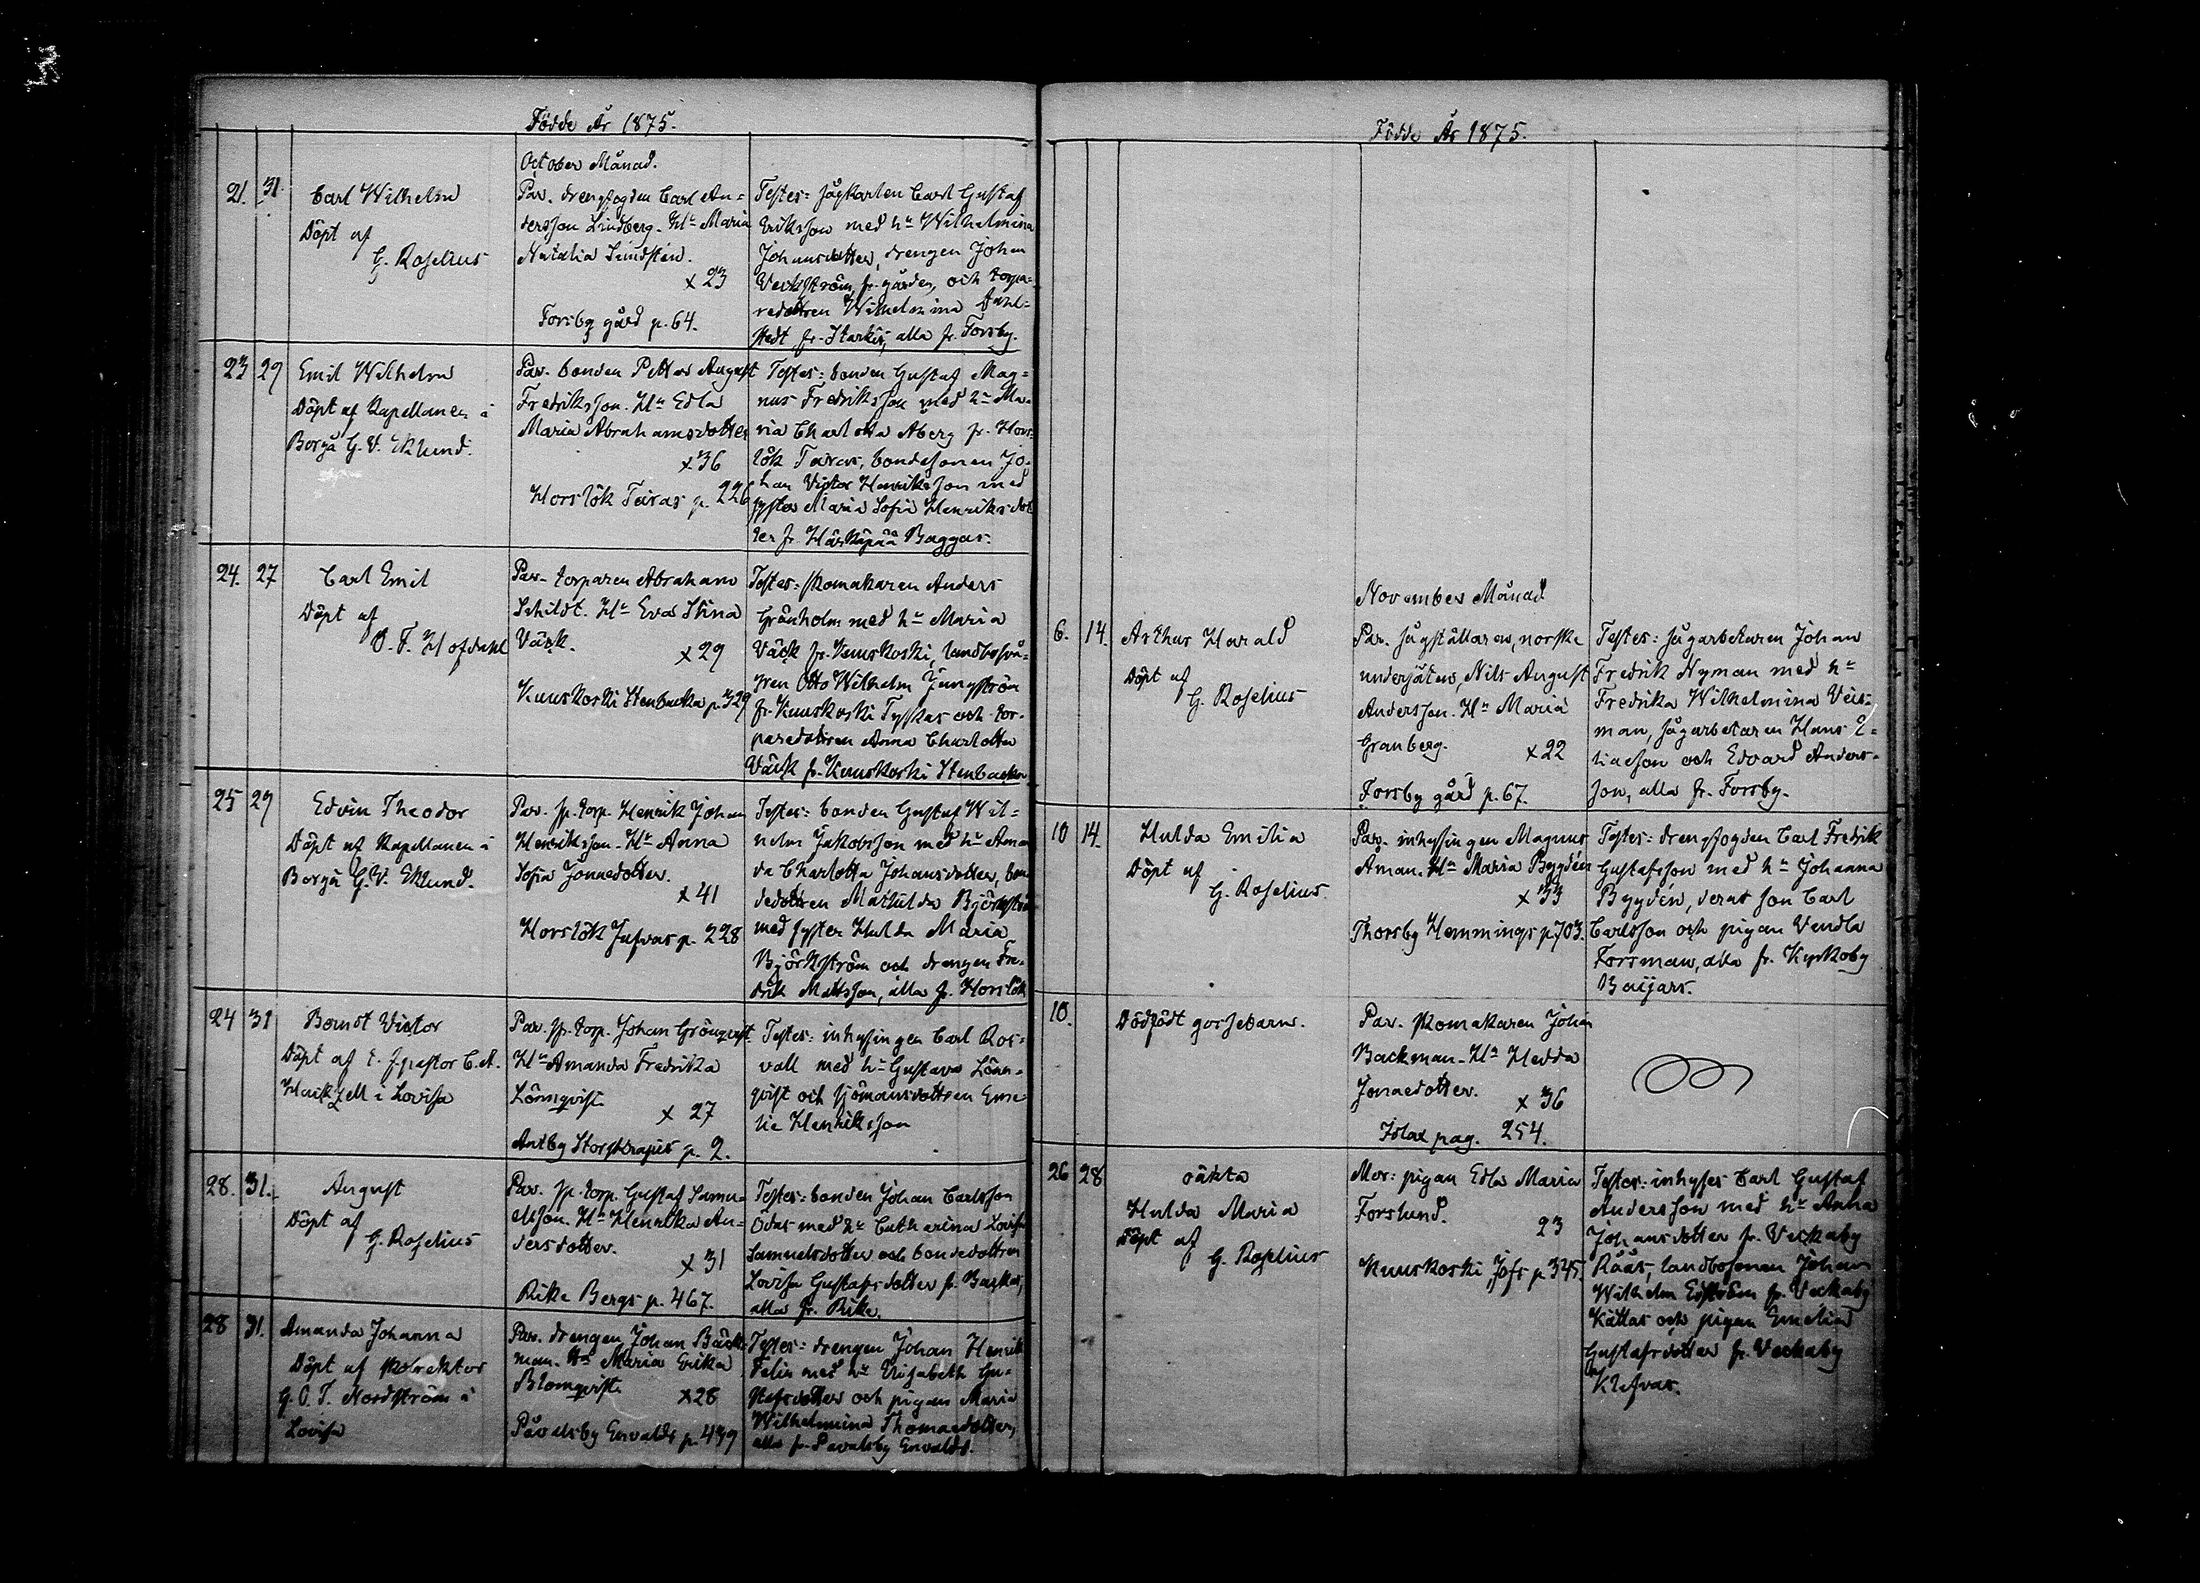 Födde År 1875.
October Månad.
21. 31.
Carl Wilhelm
Döpt af
G. Roselius
Par. drengfogden Carl An=
dersson Lindberg. H:u Maria
Natalia Lindstén.
x 23
Forsby gård p. 64.
Testes: sågkarlen Carl Gustaf
Eriksson med h:u Wilhelmina
Johansdotter, drengen Johan
Verkström, fr. gården, och torpa=
redottren Wilhelmina Dahl=
stedt, fr. Starkis, alla fr. Forsby.
23 29
Emil Wilhelm
Döpt af Kapellanen i
Borgå G. V. Eklund.
Par. bonden Petter August
Fredriksson. H:u Edla
Maria Abrahamsdotter
x 36
Horslök Tavas p. 226
Testes: bonden Gustaf Mag=
nus Fredriksson med h:u Ma=
ria Charlotta Åberg fr. Hors=
lök Tavas, bondesonen Jo=
han Victor Henriksson med
syster Maria Sofia Henriksdot
ter fr. Härkäpää Baggas.
24. 27
Carl Emil
Döpt af
O. F. Hofdahl
Par. torparen Abraham
Schildt. H:u Eva Stina
Väck.
x 29
Kuuskoski Stenbacka p. 329
Testes: skomakaren Anders
Grönholm med h:u Maria
Väck fr. Kuuskoski, landbosvå=
gren Otto Wilhelm Jungström
fr. Kuuskoski Tyskas och tor=
paredottren Anna Charlotta
Väck fr. Kuuskoski Stenbacka
25 29
Edvin Theodor
Döpt af Kapellanen i
Borgå G. V. Eklund.
Par. sp. torp. Henrik Johan
Henriksson. H:u Anna
Sofia Jonaedotter.
x 41
Horslök Jufvas p. 228
Testes: bonden Gustaf Wil=
helm Jakobsson med h:u Aman
da Charlotta Johansdotter, bon
dedottren Mathilda Björkström
med syster Hulda Maria
Björkström och drengen Fre=
drik Mattsson, alla fr. Horslök
24 31
Berndt Victor
Döpt af E. f. pastor C. A.
i Lovisa
Par. sp. torp. Johan Grönqvist.
H:u Amanda Fredrika
Lönnqvist
x 27
Antby Storskrapis p. 2.
Testes: inhysingen Carl Ros=
vall med h:u Gustava Lönn=
qvist och sjömansdottren Eme
lie Henriksson
28. 31.
August
Döpt af
G. Roselius
Par. sp. torp. Gustaf Samu=
elsson. H:u Henrika An=
dersdotter.
x 31
Rike Bergs p. 467.
Testes: bonden Johan Carlsson
Odas med h:u Catharina Lovisa
Samuelsdotter och bondedottren
Lovisa Gustafsdotter fr. Backas,
alla fr. Rike.
28 31.
Amanda Johanna
Döpt af Konrektor
G. O. T. Nordström i
Lovisa
Par. drengen Johan Back=
man. H:u Maria Erika
Blomqvist
x 28
Påvalsby Envalds p. 439
Testes: drengen Johan Henrik
Felin med h:u Elisabeth Gu=
stafsdotter och pigan Maria
Wilhelmina Thomaedotter,
alla fr. Pavalsby Envalds.
Födde År 1875.
November Månad
6. 14.
Arthur Harald
Döpt af
G. Roselius
Par. sågställaren, norske
undersåten, Nils August
Andersson. H:u Maria
Granberg.
x 22
Forsby gård p. 67.
Testes: sågarbetaren Johan
Fredrik Nyman med h:u
Fredrika Wilhelmina Veis=
man, sågarbetaren Hans E=
liaeson och Edvard Anders=
son, alla fr. Forsby.
10 14.
Hulda Emilia
Döpt af
G. Roselius.
Par. inhysingen Magnus
Åman. H:u Maria Bygdén
x 33
Thorsby Hemmings p. 703.
Testes: drengfogden Carl Fredrik
Gustafsson med h:u Johanna
Bygdén, deras son Carl
Carlsson och pigan Vendla
Forsman, alla fr. Kyrkoby
Baijars.
10.
Dödfödt gossebarn.
Par. skomakaren Johan
Backman. H:u Hedda
Jonaedotter.
x 36
Isbax pag. 254.
26 28
oäkta
Hulda Maria
Döpt af
G. Roselius
Mor: pigan Edla Maria
Forslund.
23
Kuuskoski Jofs p 345.
Testes: inhyses Carl Gustaf
Andersson med h:u Anna
Johansdotter fr. Veckaby
Råårs, landbosonen Johan
Wilhelm Edström fr. Veckaby
Kättas och pigan Emelia
Gustafsdotter fr. Veckaby
Klefvas.